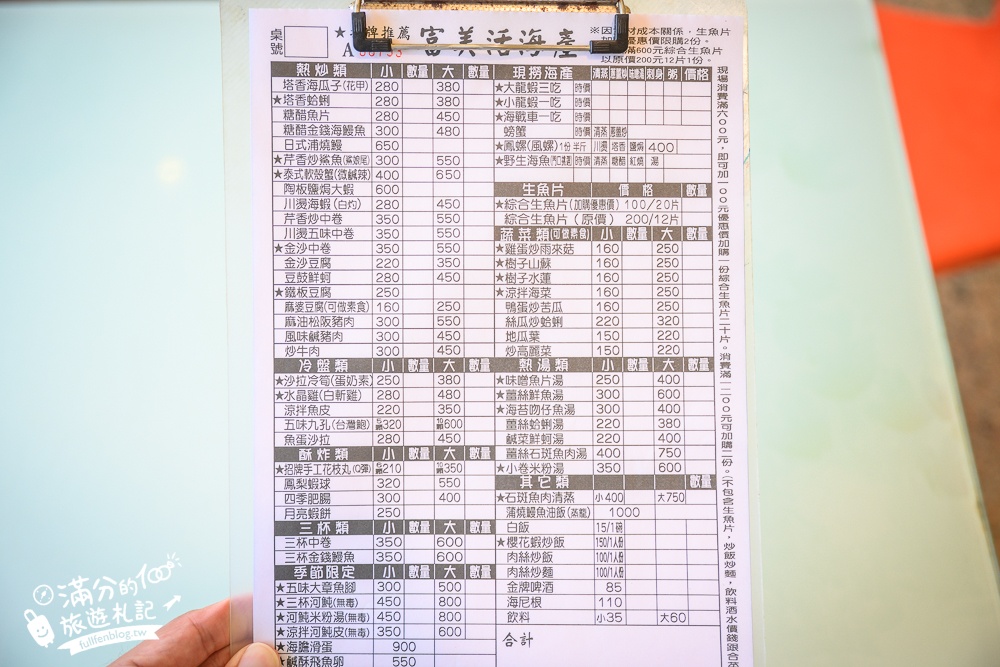 桌號
★ 牌推薦
富美活海產
※因 材成本關係,生魚片
加 優惠價限購2份。
滿600元綜合生魚片
以原價200元12片1份。
熱炒類 小 數量 大 數量
塔香海瓜子(花甲) 280 380
★塔香蛤蜊 280 380
糖醋魚片 280 450
糖醋金錢海鰻魚 300 480
日式浦燒鰻 650
★芹香炒鯊魚(鯊娘尾) 300 550
★泰式軟殼蟹(微鹹辣) 400 650
陶板鹽焗大蝦 600
川燙海蝦(白灼) 280 450
芹香炒中卷 350 550
川燙五味中卷 350 550
★金沙中卷 350 550
金沙豆腐 220 350
豆鼓鮮蚵 280 450
★鐵板豆腐 250
麻婆豆腐(可做素食) 160 250
麻油松阪豬肉 300 550
風味鹹豬肉 300 450
炒牛肉 300 450
冷盤類 小 數量 大 數量
★沙拉冷筍(蛋奶素) 250 380
★水晶雞(白斬雞) 280 480
涼拌魚皮 220 350
五味九孔(台灣鮑) 320 600
魚蛋沙拉 280 450
酥炸類 小 數量 大 數量
★招牌手工花枝丸(Q彈) 210 350
鳳梨蝦球 320 550
四季肥腸 300 400
月亮蝦餅 250
三杯類 小 數量 大 數量
三杯中卷 350 600
三杯金錢鰻魚 350 600
季節限定 小 數量 大 數量
★五味大章魚腳 300 500
★三杯河魨(無毒) 450 800
★河魨米粉湯(無毒) 450 800
★涼拌河魨皮(無毒) 350 600
★海膽滑蛋 900
★鹹酥飛魚卵 550
現撈海產 清蒸 蔥薑炒 味噌湯 刺身 粥 價格
★大龍蝦三吃 時價
★小龍蝦一吃 時價
★海戰車一吃 時價
螃蟹 時價 清蒸 蔥薑炒
★鳳螺(風螺)1份半斤 川燙 塔香 鹽焗 400
★野生海魚(門口挑選) 時價 清蒸 糖醋 紅燒 湯
生魚片 價格 數量
★綜合生魚片(加購優惠價) 100/20片
綜合生魚片(原價) 200/12片
蔬菜類(可做素食) 小 數量 大 數量
★雞蛋炒雨來菇 160 250
★樹子山蘇 160 250
★樹子水蓮 160 250
★涼拌海菜 160 250
鴨蛋炒苦瓜 160 250
絲瓜炒蛤蜊 220 320
地瓜葉 150 220
炒高麗菜 150 220
熱湯類 小 數量 大 數量
★味噌魚片湯 250 400
★薑絲鮮魚湯 300 600
★海苔吻仔魚湯 300 400
薑絲蛤蜊湯 220 380
鹹菜鮮蚵湯 220 400
薑絲石斑魚肉湯 400 750
★小卷米粉湯 350 600
其它類 數量
★石斑魚肉清蒸 小400 大750
蒲燒鰻魚油飯(蒸籠) 1000
白飯 15/1碗
★櫻花蝦炒飯 150/1人份
肉絲炒飯 100/1人份
肉絲炒麵 100/1人份
金牌啤酒 85
海尼根 110
飲料 小35 大60
合計
現場消費滿六00元,即可加一00元優惠價加購一份綜合生魚片二十片。消費滿一二00元可加購二份。(不包含生魚片,炒飯炒麵,飲料酒水價錢跟合菜
滿分的
旅遊札記
fullfenblog.tw